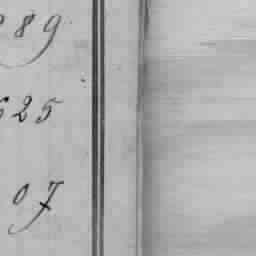 89
625
07